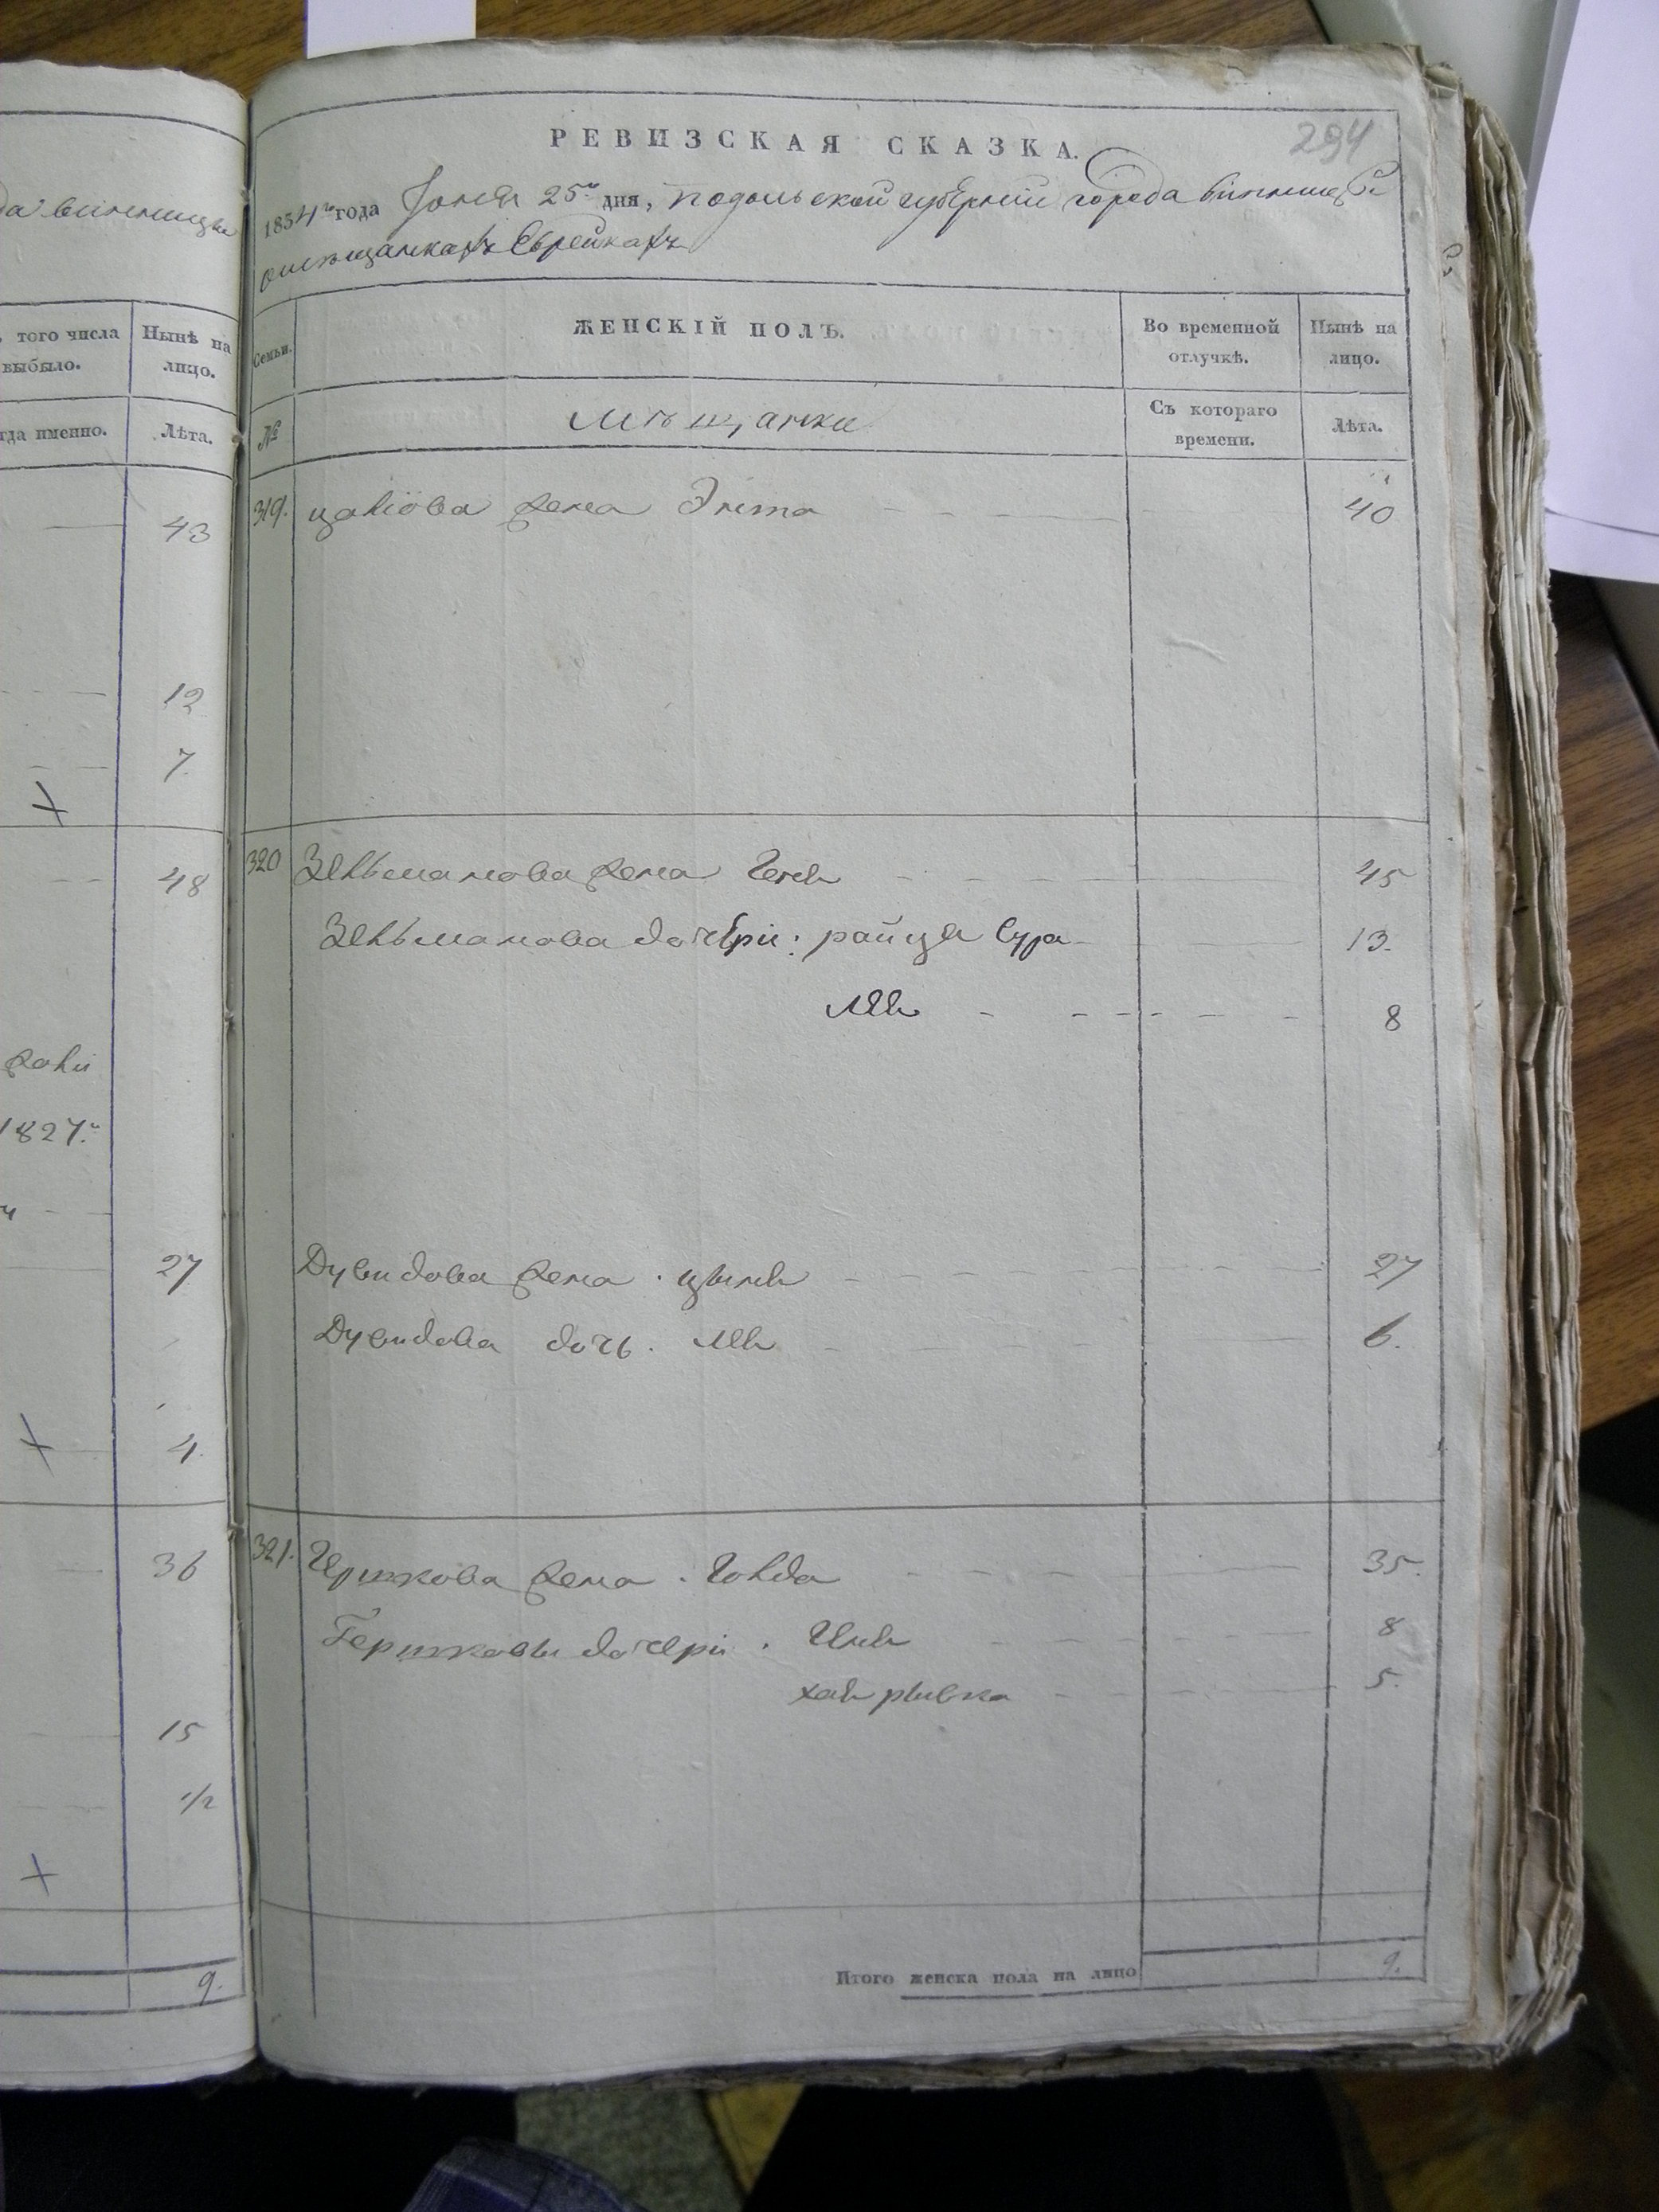 да винницы
того числа выбыло.
Нынѣ на лицо.
гда именно.
Лѣта.
43
12
7
48
1827.
27
4.
36
15
1/2
9.
294
РЕВИЗСКАЯ СКАЗКА.
1834го года Іюня 25го дня, Подольской губерніи города Винницы
о мѣщанкахъ Еврейкахъ
Семьи.
ЖЕНСКІЙ ПОЛЪ.
Во временной отлучкѣ.
Нынѣ на лицо.
№
Мѣщанки
Съ котораго времени.
Лѣта.
319. жена 40
320 Зельманова жена Геня 45
Зельманова дочери: райца Сура 13.
Лея 8
Дувидова жена. цыня 27
Дувидова дочь. Лея 6.
321. Гершкова жена. Голда 35.
Гершковы дочери. 8
хая рывка 5.
Итого женска пола на лицо 9.